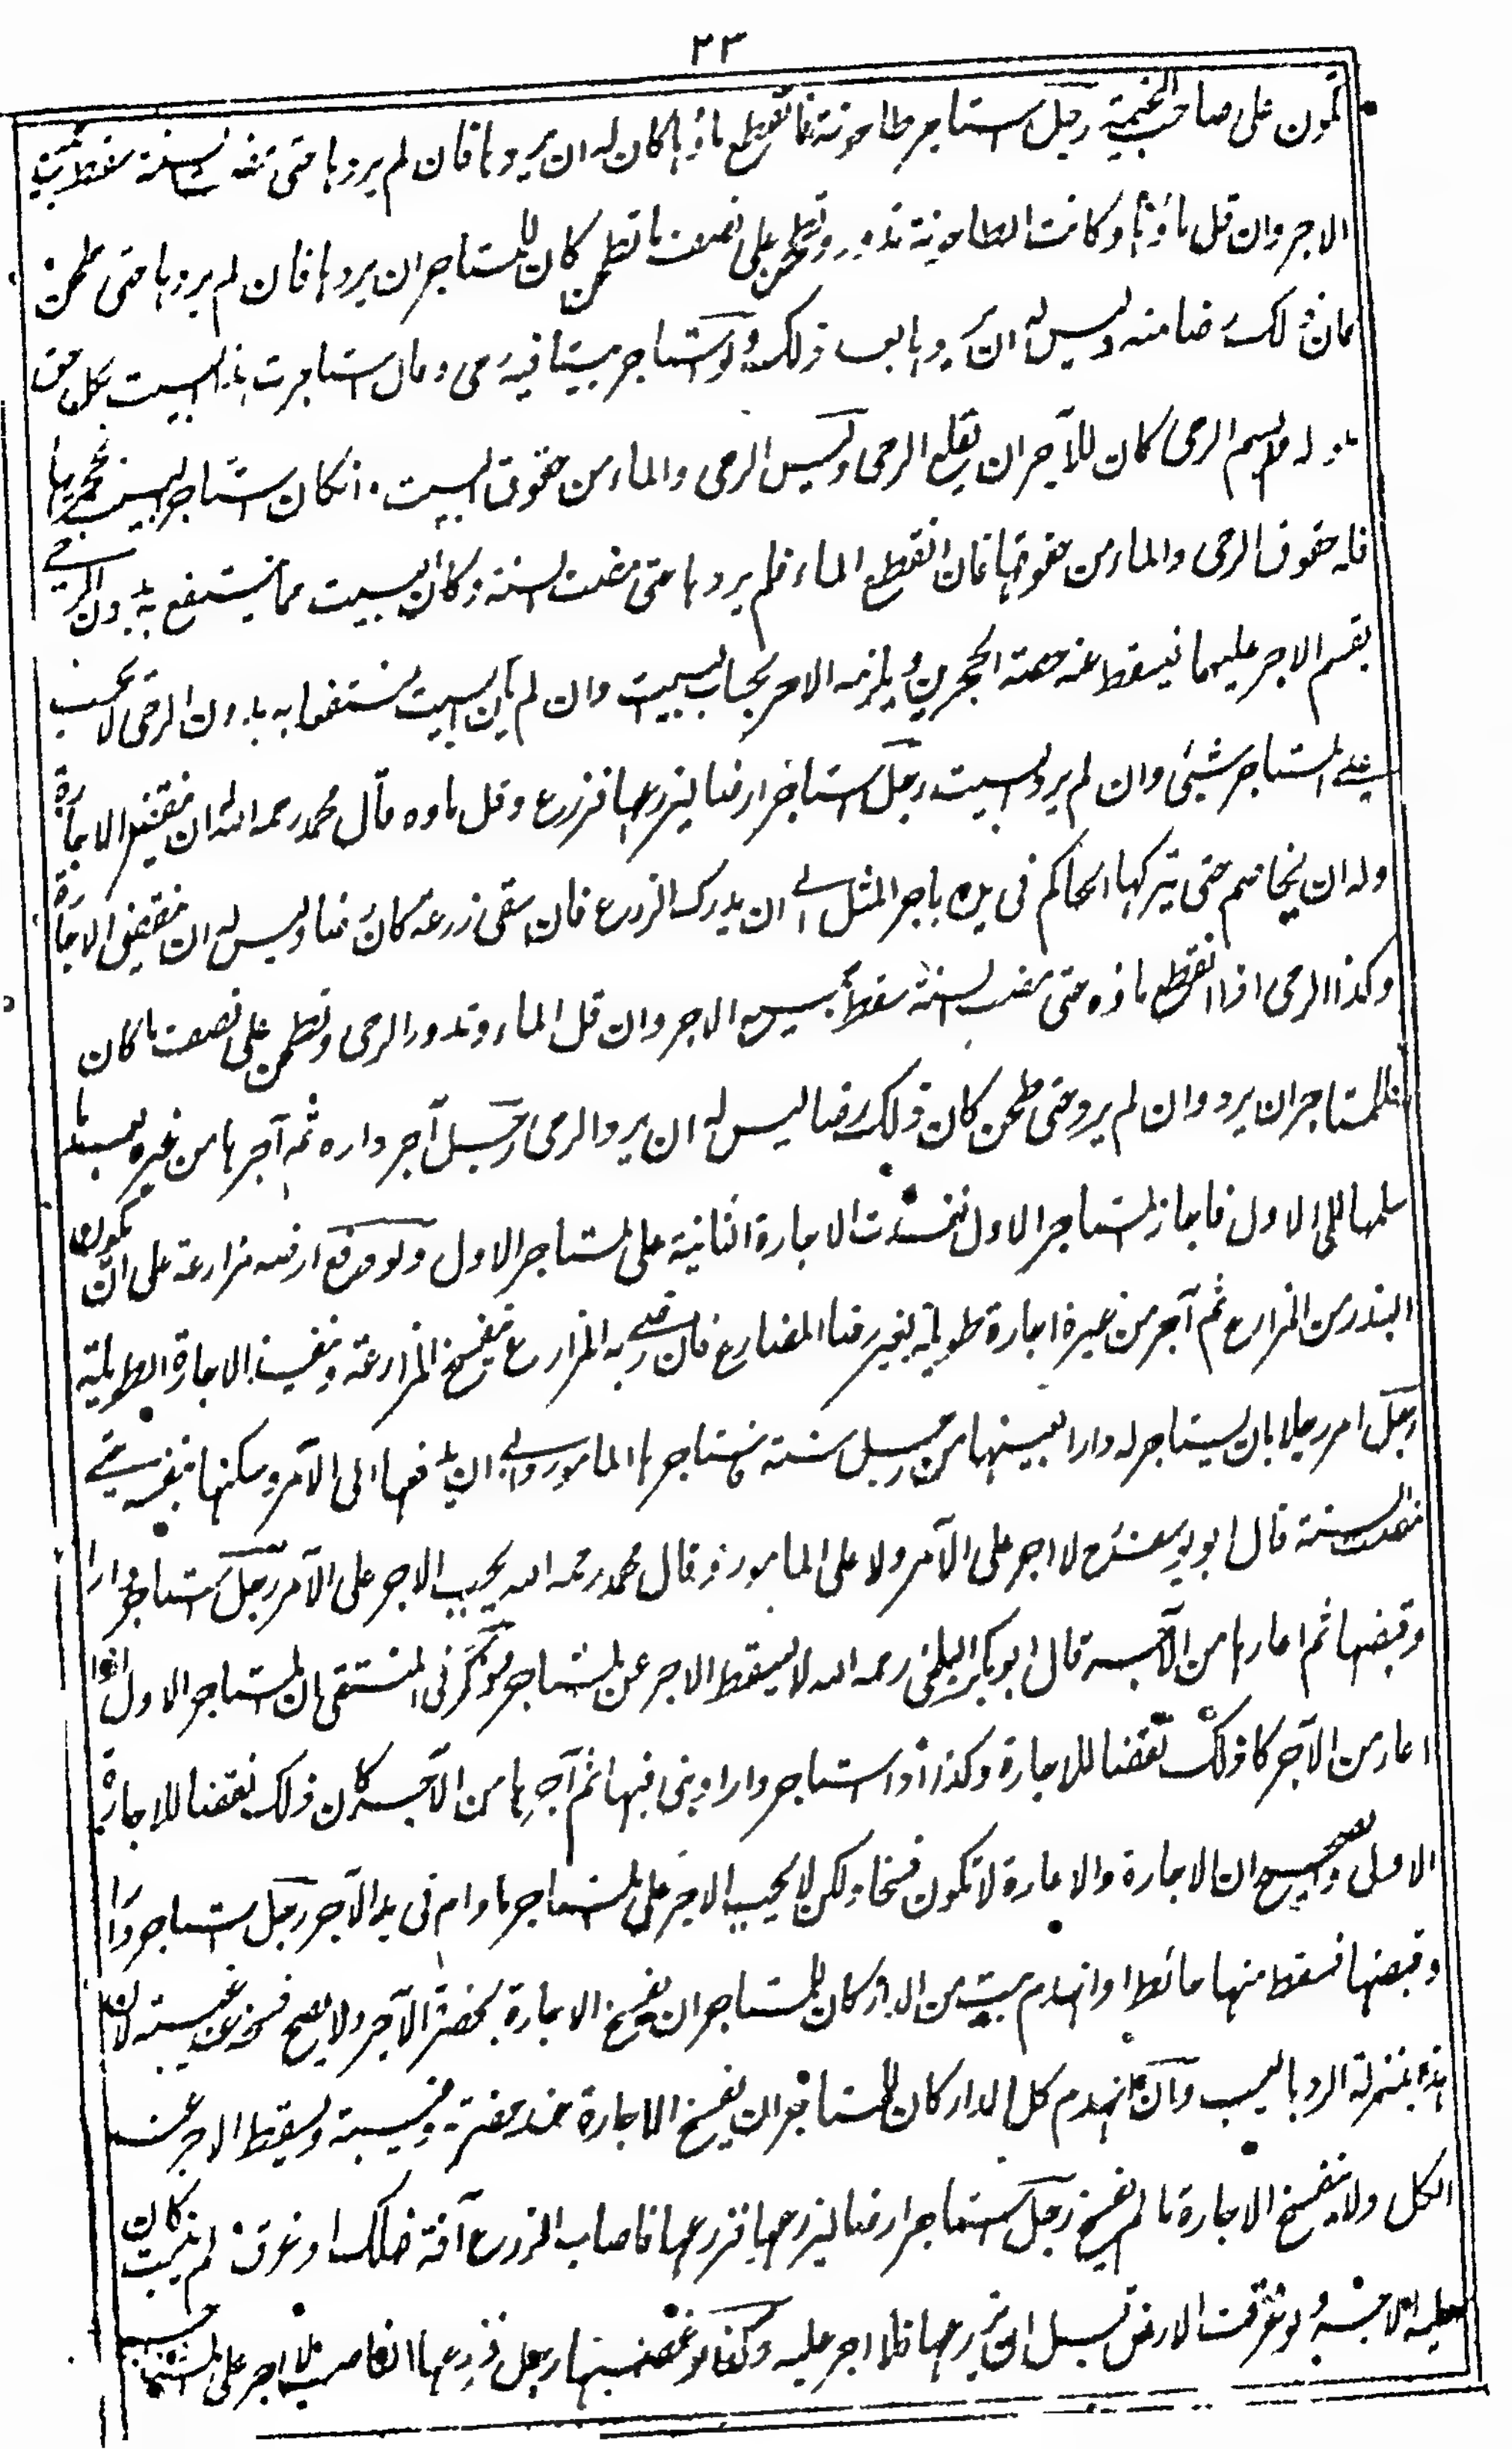 ٢٣
تكون على صاحب الخيمة رجل استاجر طاحونة فانقطع ماؤها كان له ان يردها فان لم يردها حتى مضت السنة سقط
الاجر وان قل ماؤها وكانت الطاحونة تدور وتطحن على نصف ما تطحن كان للمستاجر ان يردها فان لم يردها حتى طحن
كان ذلك رضا منه وليس له ان يردها بعد ذلك ولو استاجر بيتا فيه رحى وقال استاجرت هذا البيت بكل حق
هو له ولم يسم الرحى كان للآجر ان يقلع الرحى وليس الرحى والماء من حقوق البيت وان كان استاجر البيت بحجريها
فله حقوق الرحى والماء من حقوقها فان انقطع الماء فلم يردها حتى مضت السنة وكان البيت مما ينتفع به بدون الرحى
يقسم الاجر عليهما فيسقط عنه حصة الحجرين ويلزمه الاجر بحساب البيت وان لم يكن البيت منتفعا به بدون الرحى لا يجب
على المستاجر شيئ وان لم يرد البيت رجل استاجر ارضا ليزرعها فزرع وقل ماؤه قال محمد رحمه الله له ان ينقض الاجارة
وله ان يخاصم حتى يتركها الحاكم فى يده باجر المثل الى ان يدرك الزرع فان سقى زرعه كان رضا وليس له ان ينقض الاجارة
وكذا الرحى اذا انقطع ماؤه حتى مضت السنة سقط جميع الاجر وان قل الماء وتدور الرحى وتطحن على نصف ما كان
فللمستاجر ان يرد وان لم يرد حتى طحن كان ذلك رضا ليس له ان يرد الرحى رجل آجر داره ثم آجرها من غيره بعد ما
سلمها الى الاول فاجاز المستاجر الاول نفذت الاجارة الثانية على المستاجر الاول ولو دفع ارضه مزارعة على ان يكون
البذر من المزارع ثم آجر من غيره اجارة طويلة بغير رضا المزارع فان رضى به المزارع ينفسخ المزارعة وينفذ الاجارة الطويلة
رجل امر رجلا بان يستاجر له دارا بعينها من رجل سنة فاستاجرها المامور وابى ان يدفعها الى الآمر وسكنها بنفسه حتى
مضت السنة قال ابو يوسف رح لا اجر على الآمر ولا على المامور وقال محمد رحمه الله يجب الاجر على الآمر رجل استاجر دارا
وقبضها ثم اعارها من الآجر قال ابو بكر البلخى رحمه الله لا يسقط الاجر عن المستاجر وذكر فى المنتقى ان المستاجر الاول اذا
اعار من الآجر كان ذلك نقضا للاجارة وكذا اذا استاجر دارا وبنى فيها ثم آجرها من الآجر كان ذلك نقضا للاجارة
الاولى والصحيح ان الاجارة والاعارة لا تكون فسخا ولكن لا يجب الاجر على المستاجر ما دام فى يد الآجر رجل استاجر دارا
وقبضها فسقط منها حائط او انهدم بيت من الدار كان للمستاجر ان يفسخ الاجارة بحضرة الآجر ولا يصح فسخه عند غيبته لان
هذه بمنزلة الرد بالعيب وان انهدم كل الدار كان للمستاجر ان يفسخ الاجارة عند حضرته وغيبته ويسقط الاجر عند
الكل ولا ينفسخ الاجارة ما لم يفسخ رجل استاجر ارضا ليزرعها فزرعها فاصاب الزرع آفة فهلك او غرق لم ينبت كان
عليه الاجر ولو غرقت الارض قبل ان يزرعها فلا اجر عليه وكذا لو غصبها رجل فزرعها الغاصب لا اجر على المستاجر